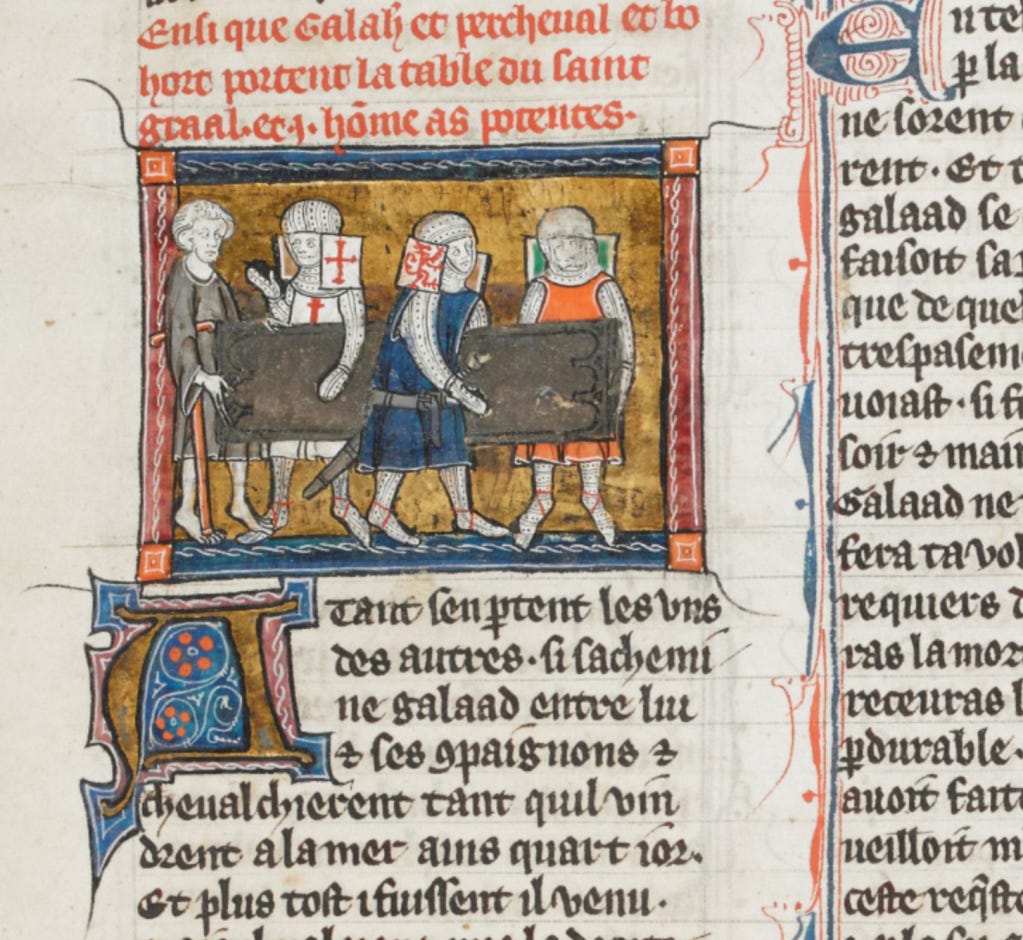 Ensi que Galah et percheual et bo
hort portent la table du saint
graal. et .j. hõme as potentes.
A Tant sen ptent les vns
des autres. si sachemi
ne galaad entre lui
⁊ ses 9paignons ⁊
cheualchierent tant quil vin
drent a la mer ains quart ior.
Et plus tost i fuissent il venu.
E n te
p la
ne sorent
rent. Et
galaad se
faisoit
que de que
trespasem
uoiast. si
soir ⁊ main
Galaad ne
fera ta vol
requiers
ras la mor
receuras
pdurable.
auoit fait
ueilloit
ceste reqste